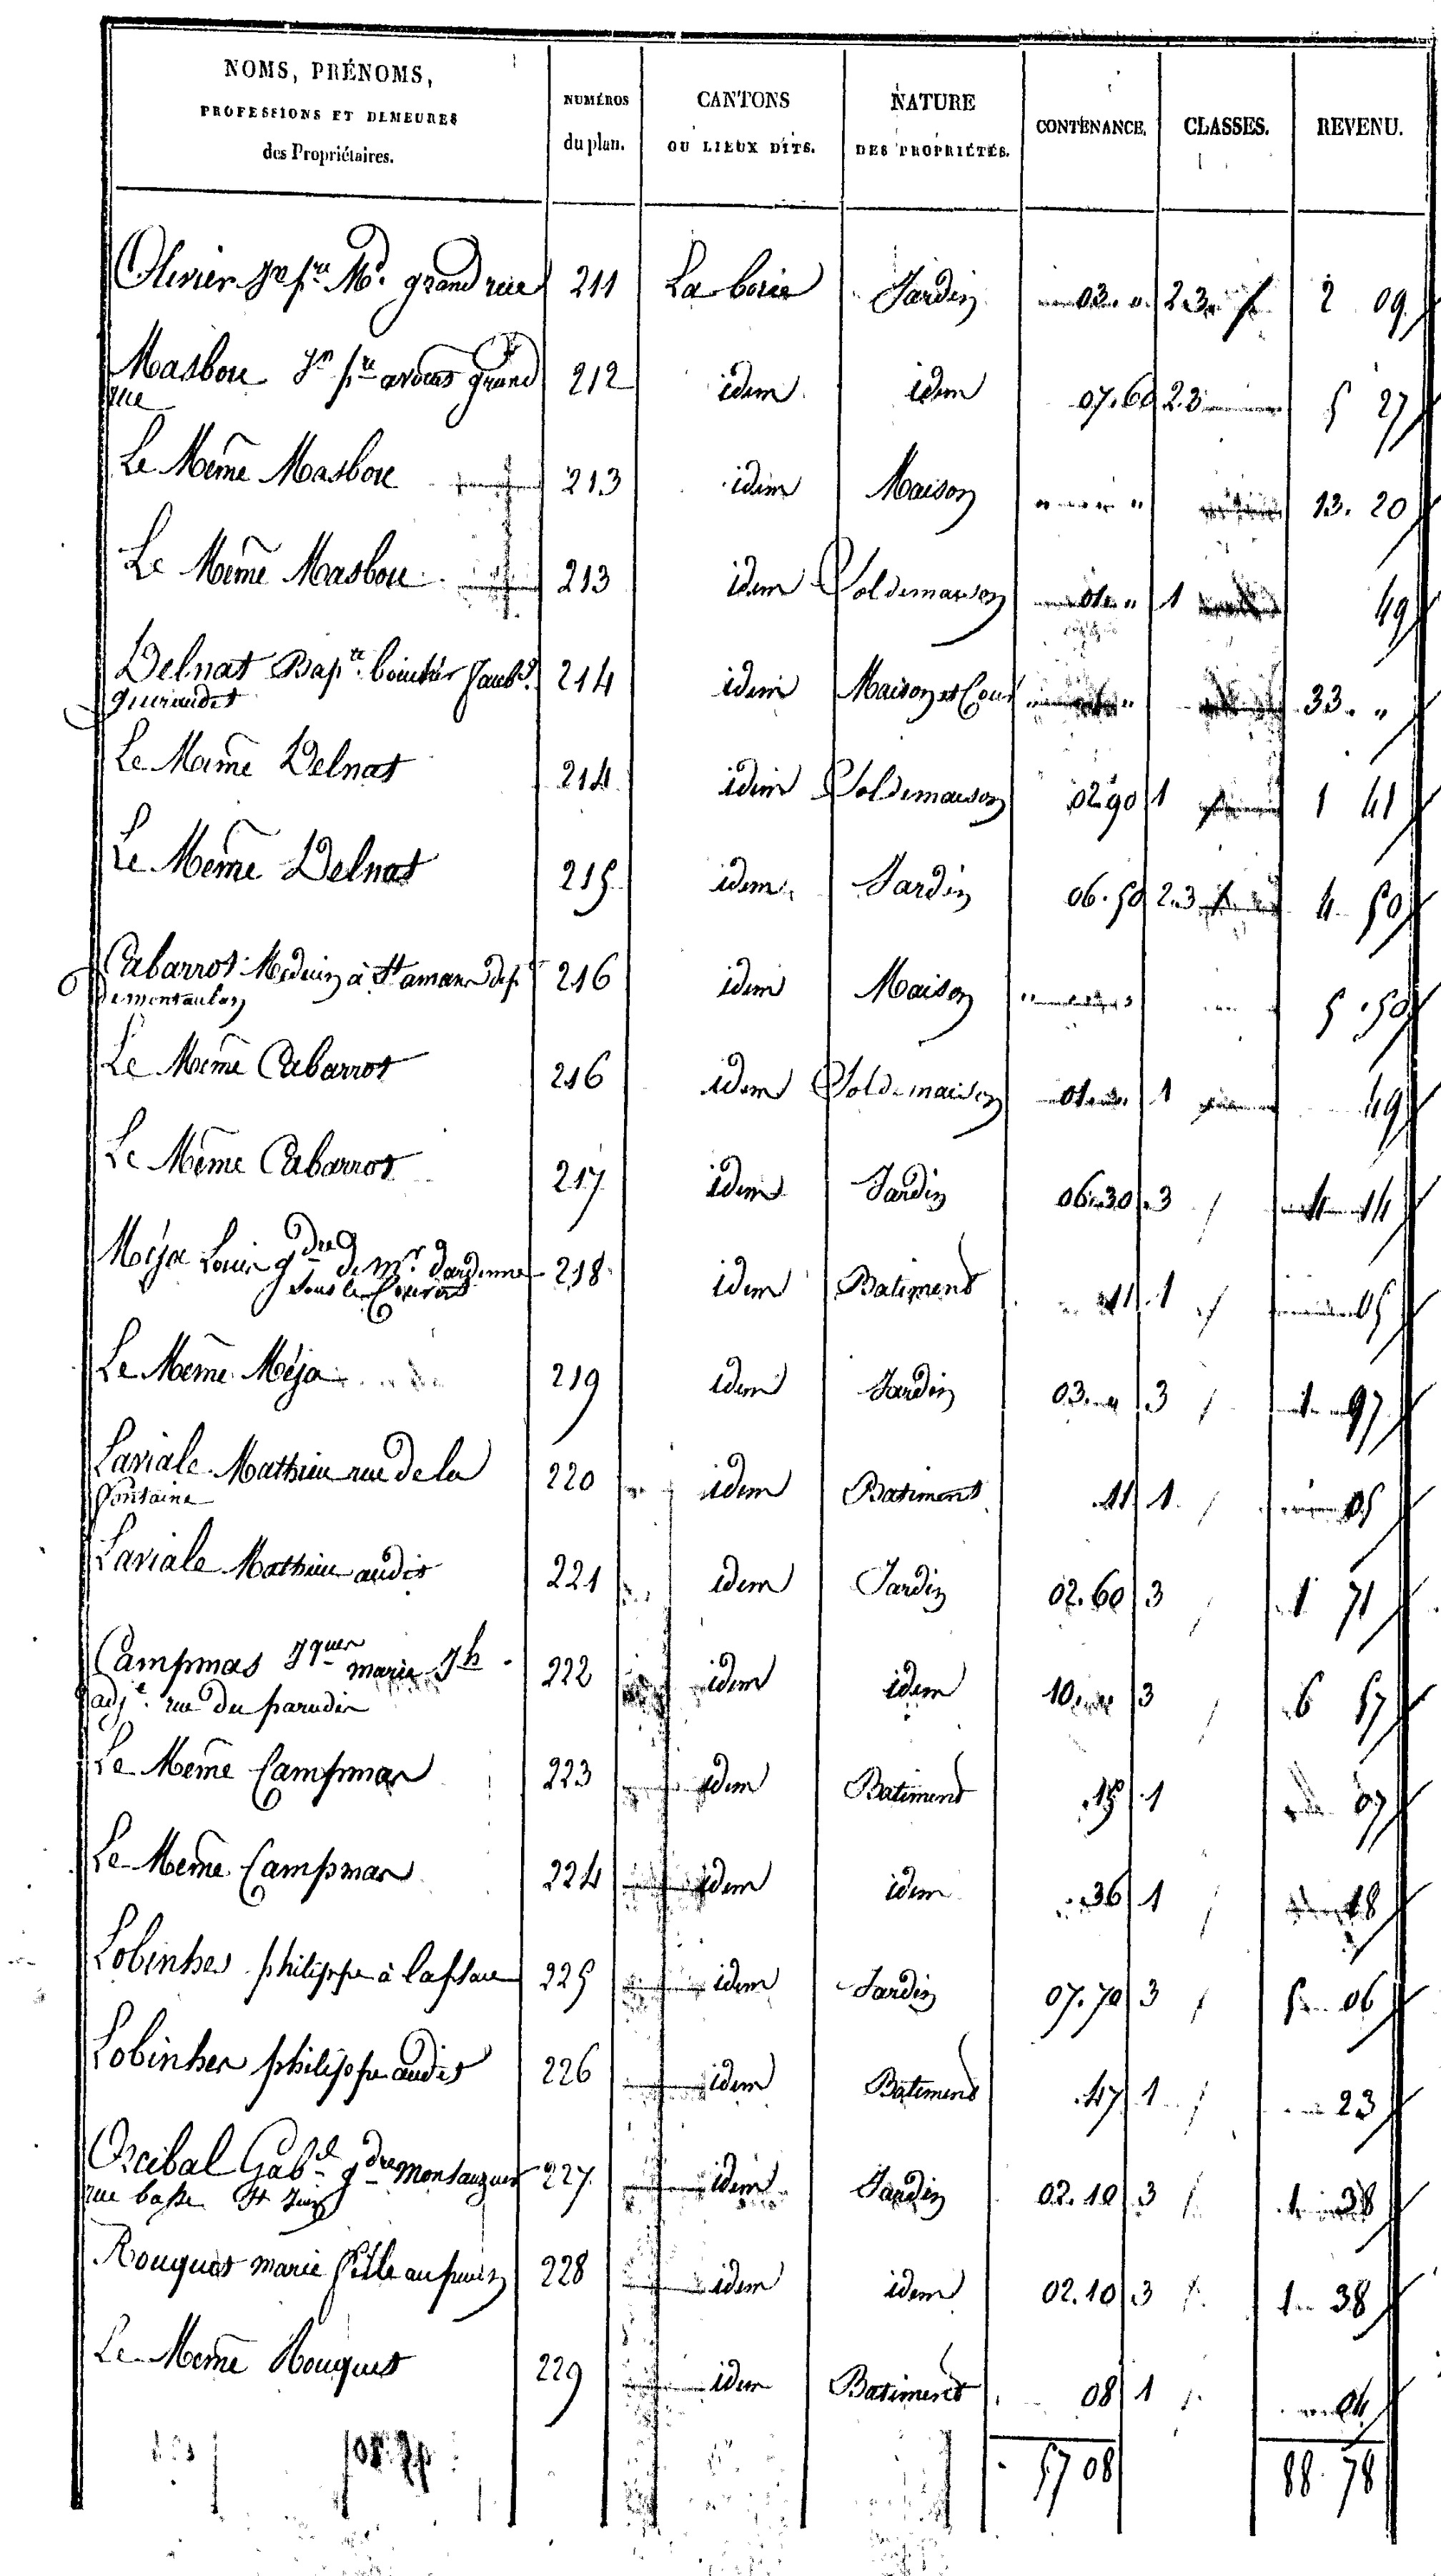 NOMS, PRÉNOMS,
PROFESSIONS ET DEMEURES
des Propriétaires.
NUMÉROS
du plan.
CANTONS
OU LIEUX DITS.
NATURE
DES PROPRIÉTÉS.
CONTENANCE.
CLASSES.
REVENU.
Olivier Jn pre Md. grand rue 211 La borie Jardin 03. " 2.3 2 09
Masbou Jn pre avocat grand 212 idem idem 07.60 2.3 5 27
rue
Le Même Masbou 213 idem Maison 13. 20
Le Même Masbou 213 idem Sol de maison 01. " 1 49
Delnat Bapte. Faubg. 214 idem Maison et Cour 33. "
Le Même Delnat 214 idem Sol de maison 02.90 1 1 41
Le Même Delnat 215 idem Jardin 06.50 2.3 4 50
Cabarrot Medecin à St amans 216 idem Maison 5.50
Le Même Cabarrot 216 idem Sol de maison 01. 1 49
Le Même Cabarrot 217 idem Jardin 06.30 3 4 14
Méja Louis gdre de Mr. 218 idem Batiment 11 1 05
sous le
Le Même Méja 219 idem Jardin 03. " 3 1 97
Laviale Mathieu rue de la 220 idem Batiment 11 1 05
fontaine
Laviale Mathieu audit 221 idem Jardin 02.60 3 1 71
Campmas Jques marie Jh 222 idem idem 10 3 6 57
adjt. rue du paradis
Le Même Campmas 223 idem Batiment 15 1 07
Le Même Campmas 224 idem idem 36 1 18
Lobinhes philippe à 225 idem Jardin 07.70 3 5 06
Lobinhes philippe audit 226 idem Batiment 47 1 23
Orcibal Gabel gdre 227 idem Jardin 02.10 3 1 38
rue basse St
Rouquet marie fille au puits 228 idem idem 02.10 3 1 38
Le Même Rouquet 229 idem Batiment 08 1 04
57 08 88 78